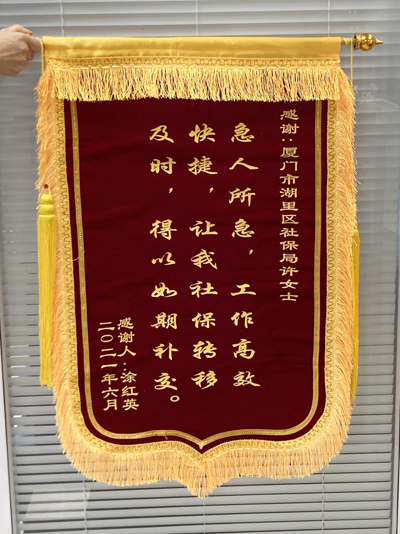 感谢：厦门市湖里区社保局许女士
急人所急，工作高效
快捷，让我社保转移
及时，得以如期补交。
感谢人：涂红英
二〇二一年六月